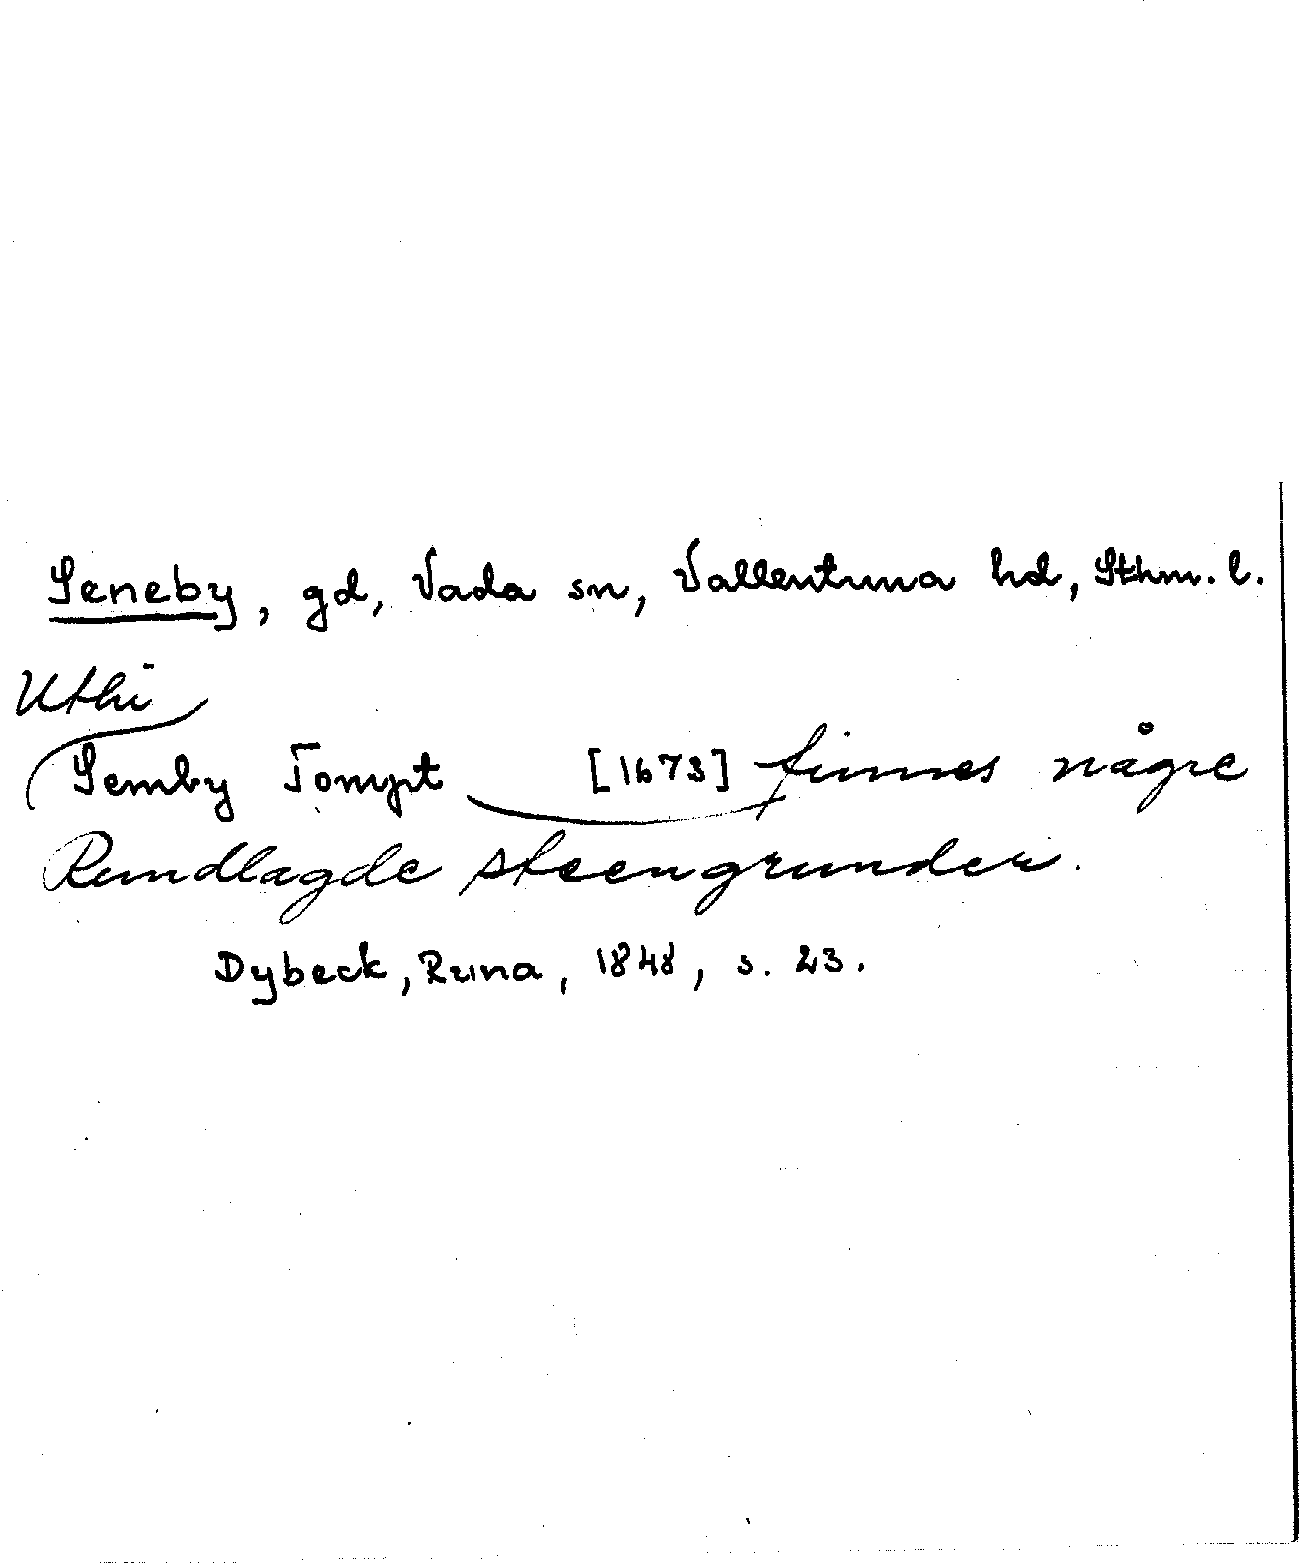 Seneby, gd, Vada sn, Vallentuna hd, Sthm. l.
Uthi
Semby Tompt [1673] finnes någre
Rundlagde steengrunder.
Dybeck, Runa, 1848, s. 23.